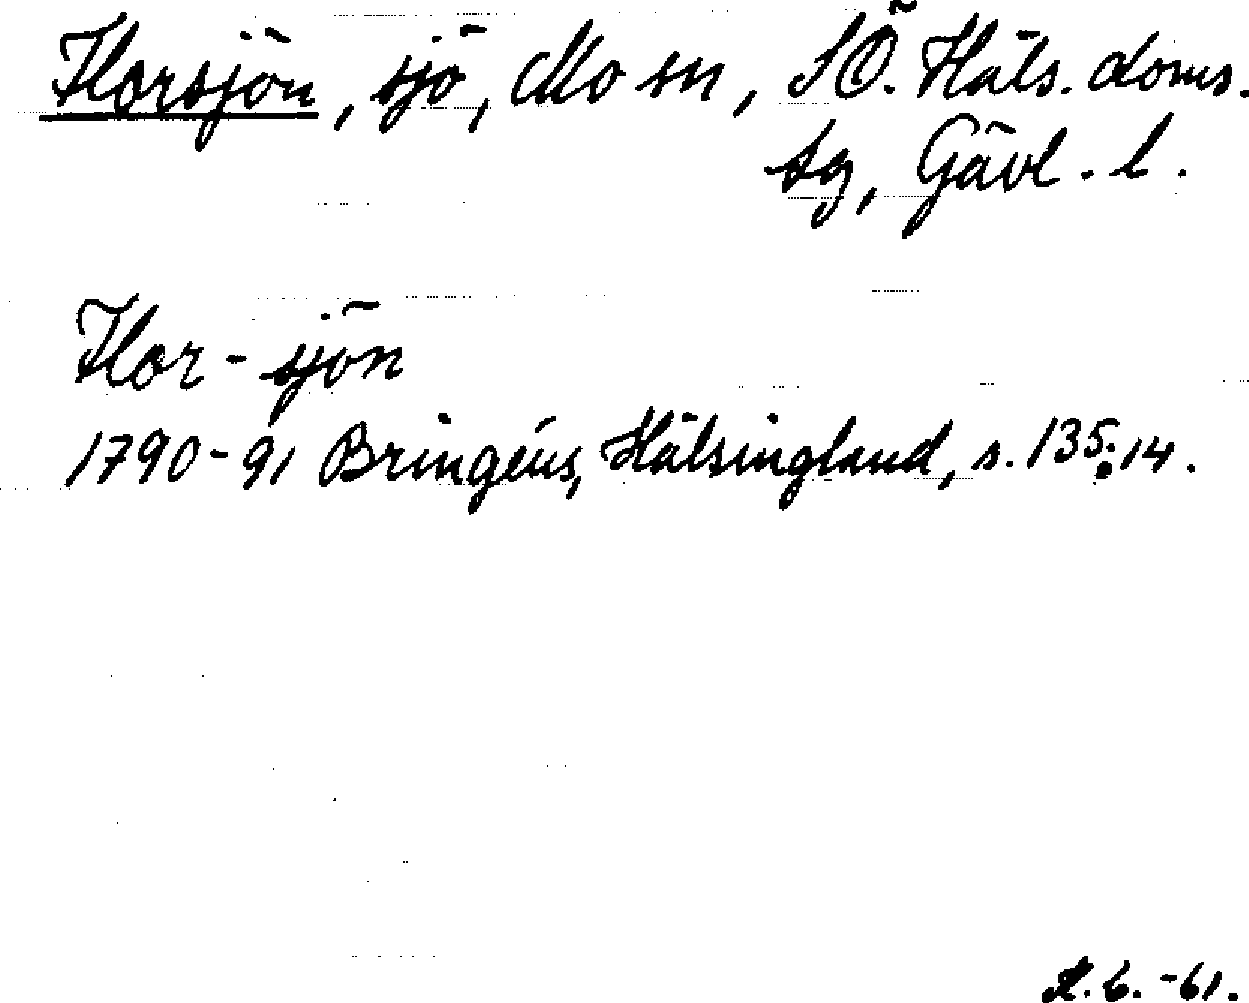 Horsjön, sjö, Mo sn, SÖ. Häls. doms.
sg, Gävl. l.
Hor-sjön
1790-91 Bringéus, Hälsingland, s. 135:14.
-61.